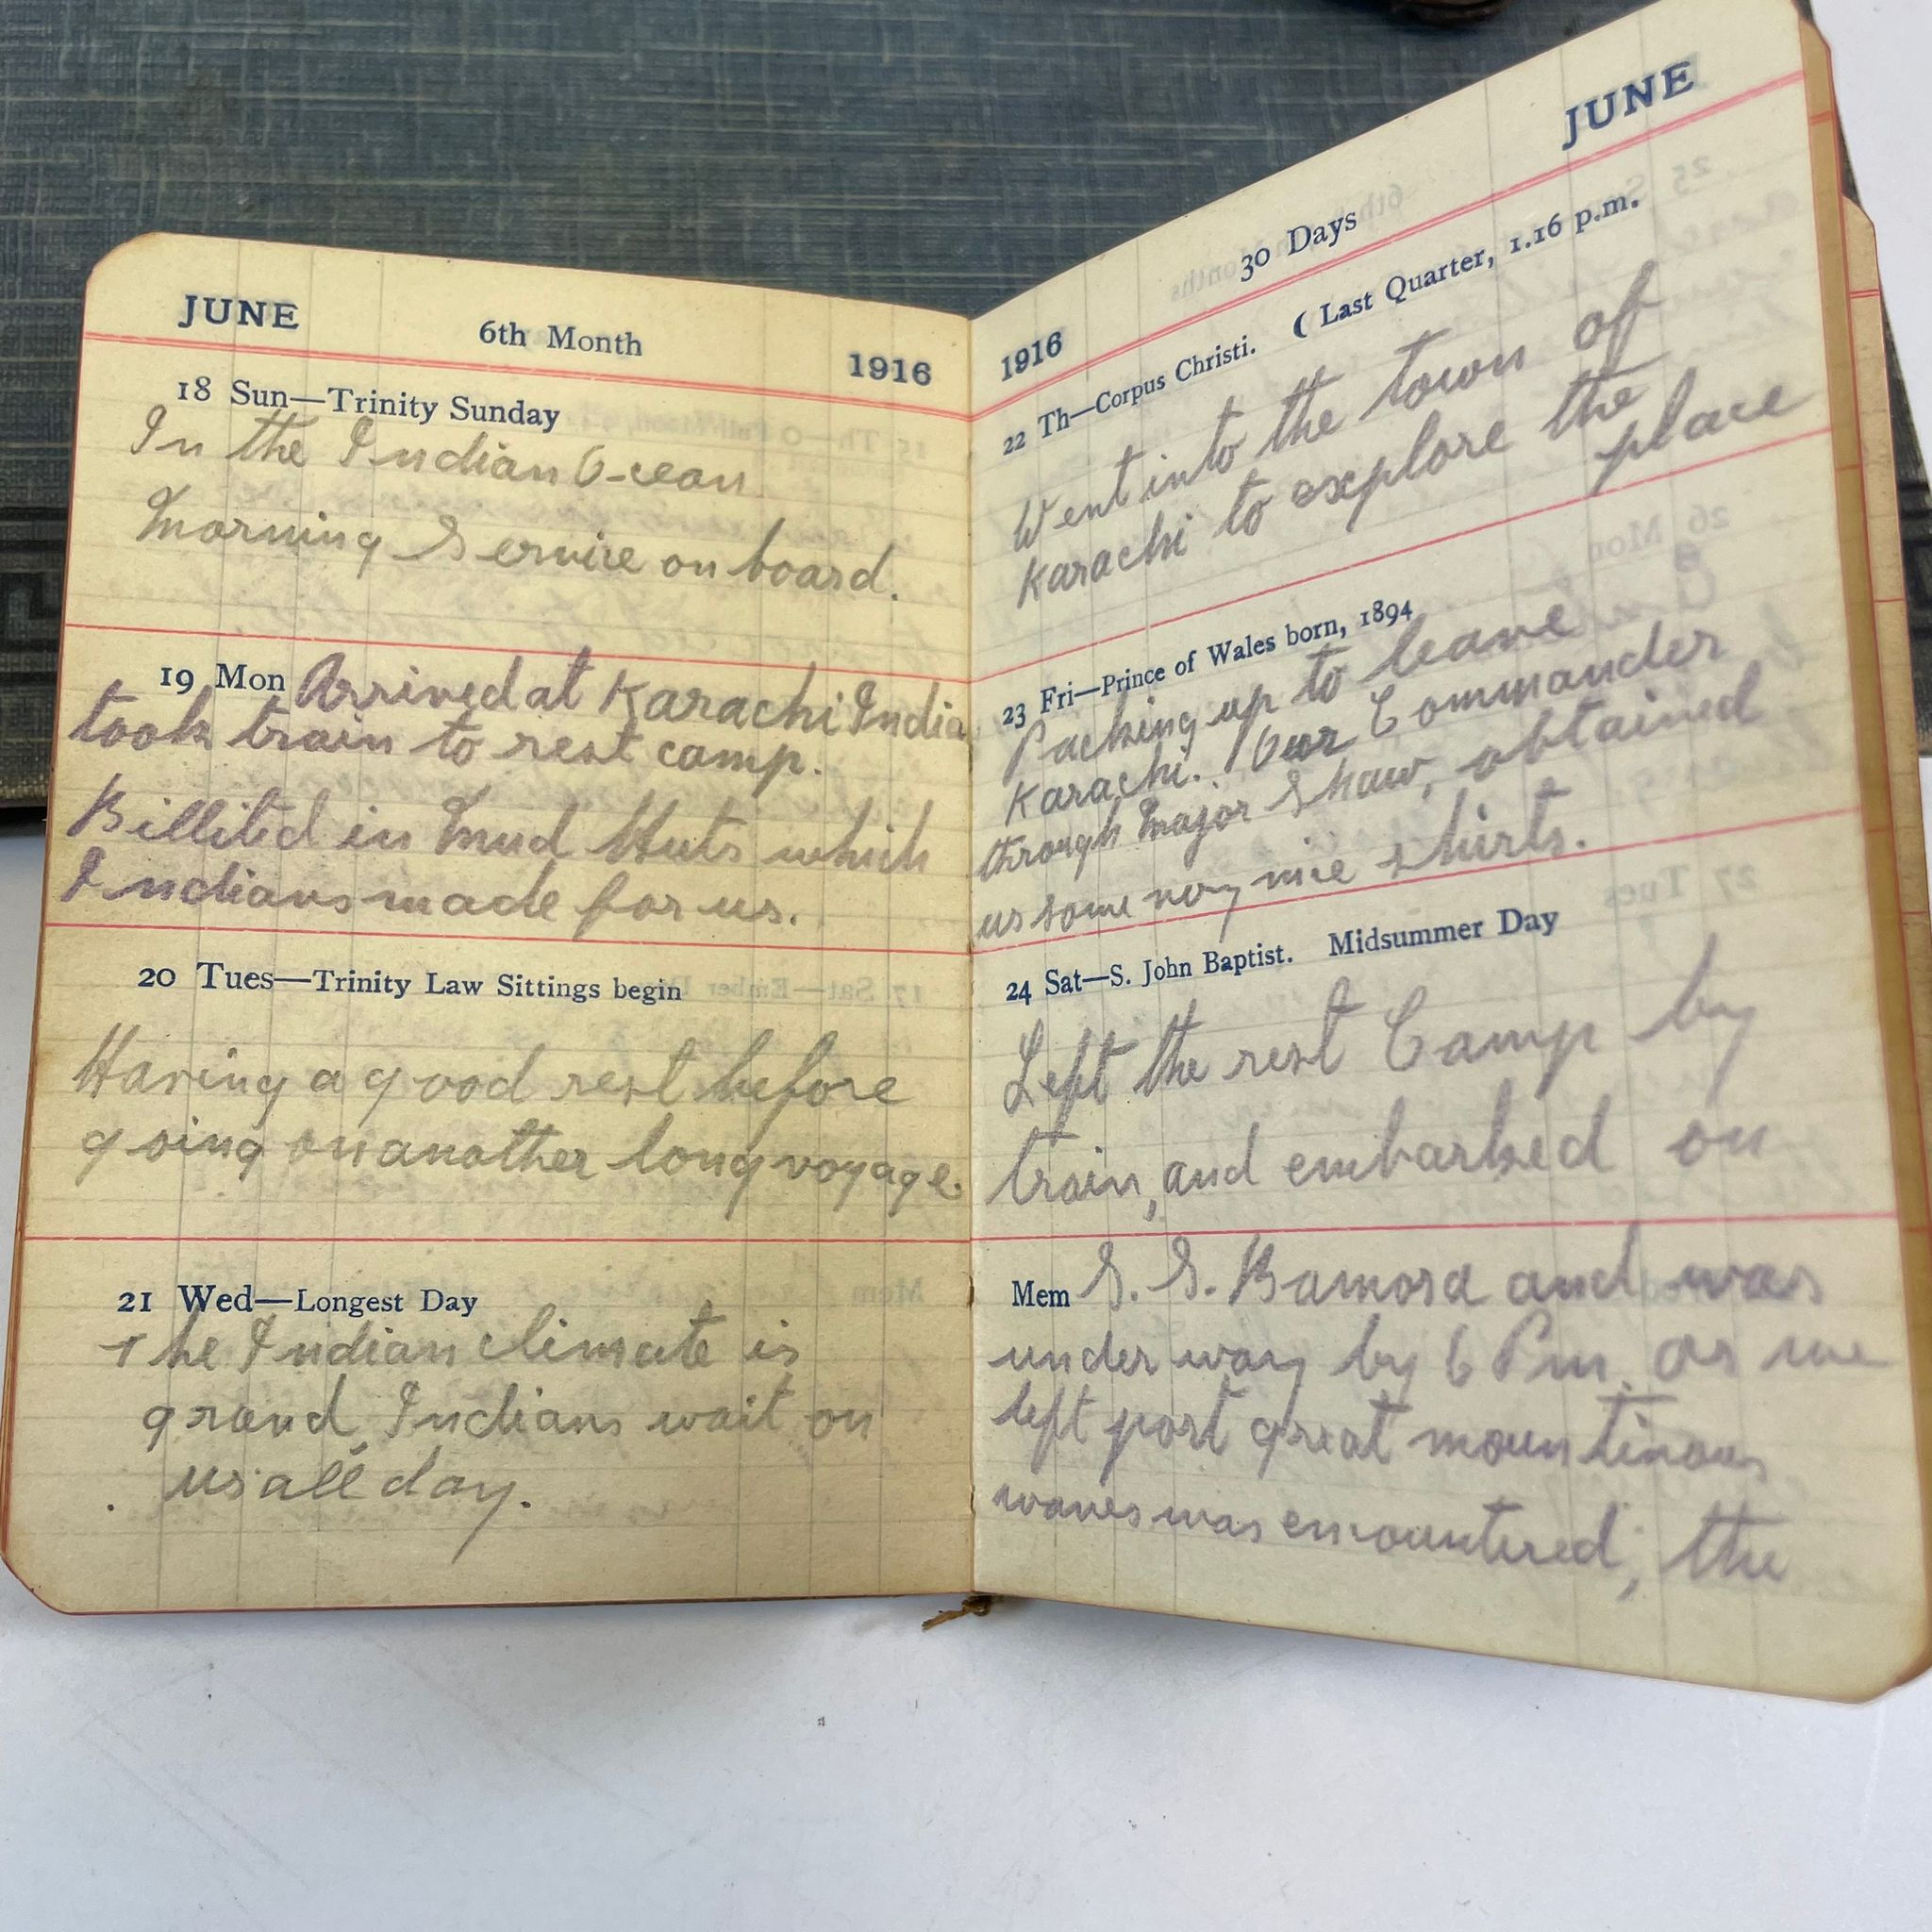 JUNE 6th Month 1916
18 Sun—Trinity Sunday
In the Indian Ocean
Morning Service on board.
19 Mon Arrived at Karachi India
took train to rest camp.
Billited in Mud Huts which
Indians made for us.
20 Tues—Trinity Law Sittings begin
Having a good rest before
going on another long voyage.
21 Wed—Longest Day
The Indian climate is
grand, Indians wait on
us all day.
1916 30 Days JUNE
22 Th—Corpus Christi. ( Last Quarter, 1.16 p.m.
Went into the town of
Karachi to explore the
place
23 Fri—Prince of Wales born, 1894
Packing up to leave
Karachi. Our Commander
through Major Shaw, obtained
us some very nice shirts.
24 Sat—S. John Baptist. Midsummer Day
Left the rest Camp by
train, and embarked on
Mem S. S. Bamora and was
under way by 6 Pm. as we
left port great mountinous
waves was encountered, the